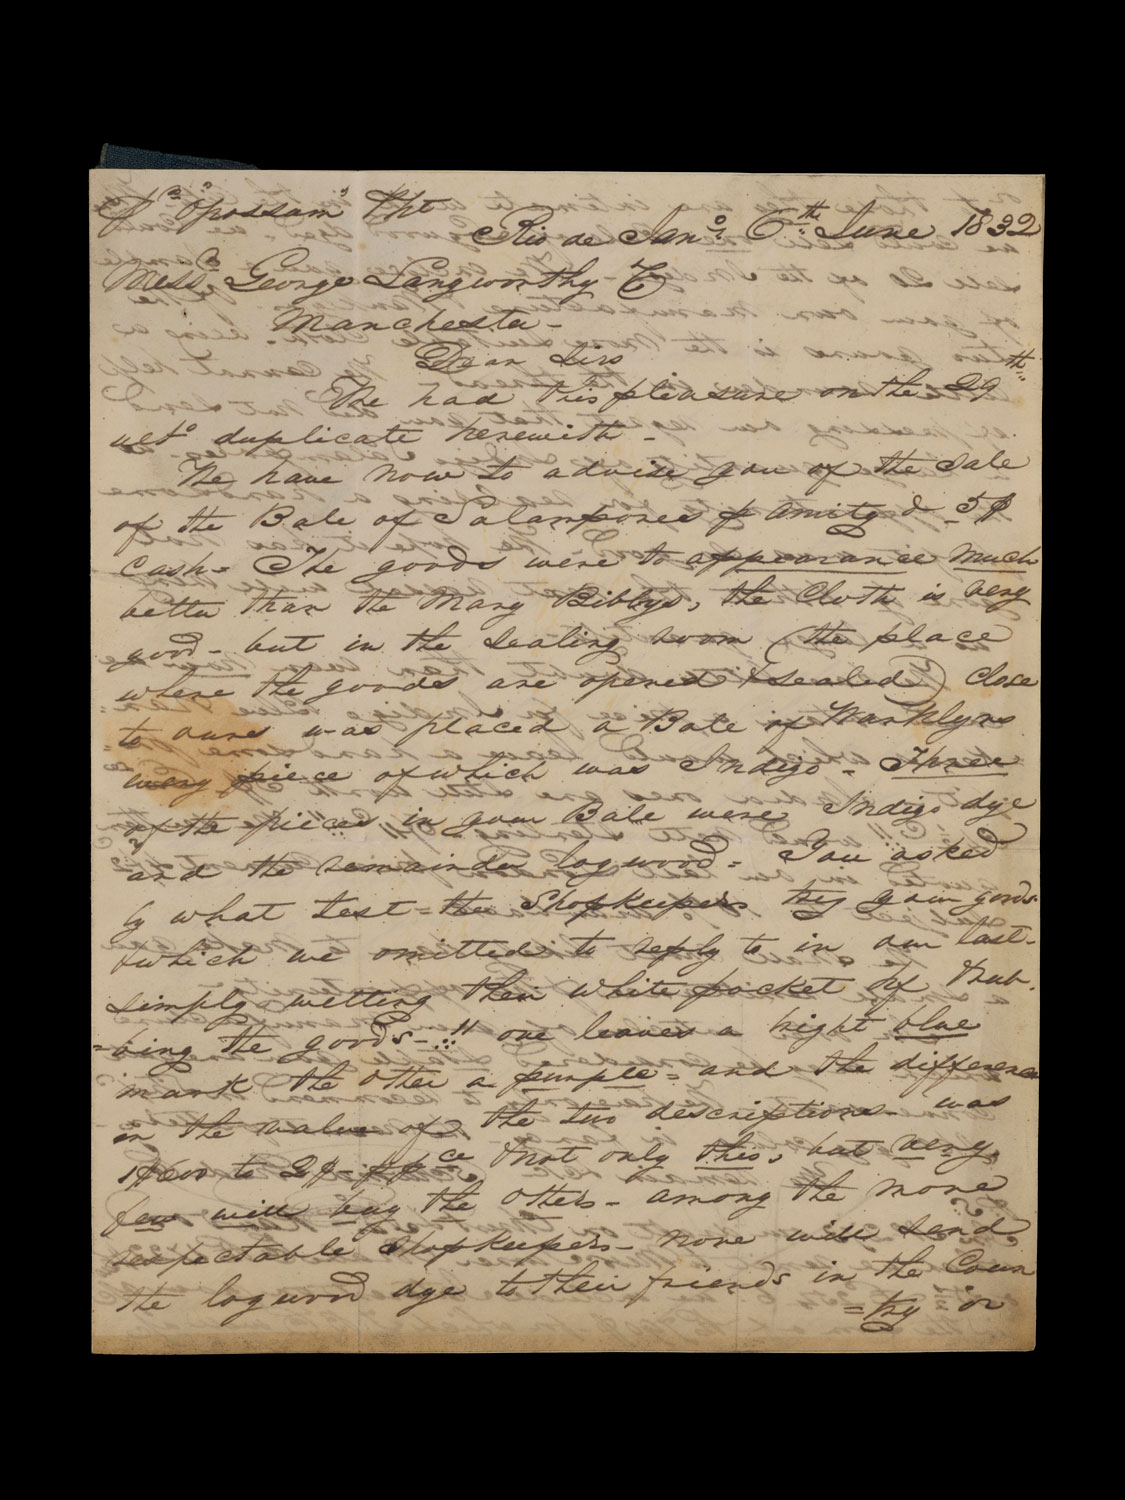 "Opossum" Pkt
Rio de Jan.o 6th June 1832
Mess.rs George Langworthy & Co
Manchester -
Dear Sirs
We had this pleasure on the 29th
ult.o duplicate herewith -
We have now to advise you of the Sale
of the Bale of Salampores p Amity @ 5$
Cash - The goods were to appearance much
better than the Mary Bibbys, the Cloth is very
good - but in the sealing room (the place
where the goods are opened & sealed) close
to ours was placed a Bale of Wanklyns
every piece of which was Indigo - Three
of the pieces in your Bale were Indigo dye
and the remainder logwood = You asked
by what test = the Shopkeepers try your goods
which we omitted to reply to in our last -
simply wetting their white pocket hf & rub
=bing the goods - !! one leaves a bright blue
mark the other a purple = and the difference
in the value of the two descriptions - was
1$600 to 2$ - p pce & not only this, but very
few will buy the others - among the more
respectable Shopkeepers - none will send
the logwood dye to their friends in the Coun
=try or